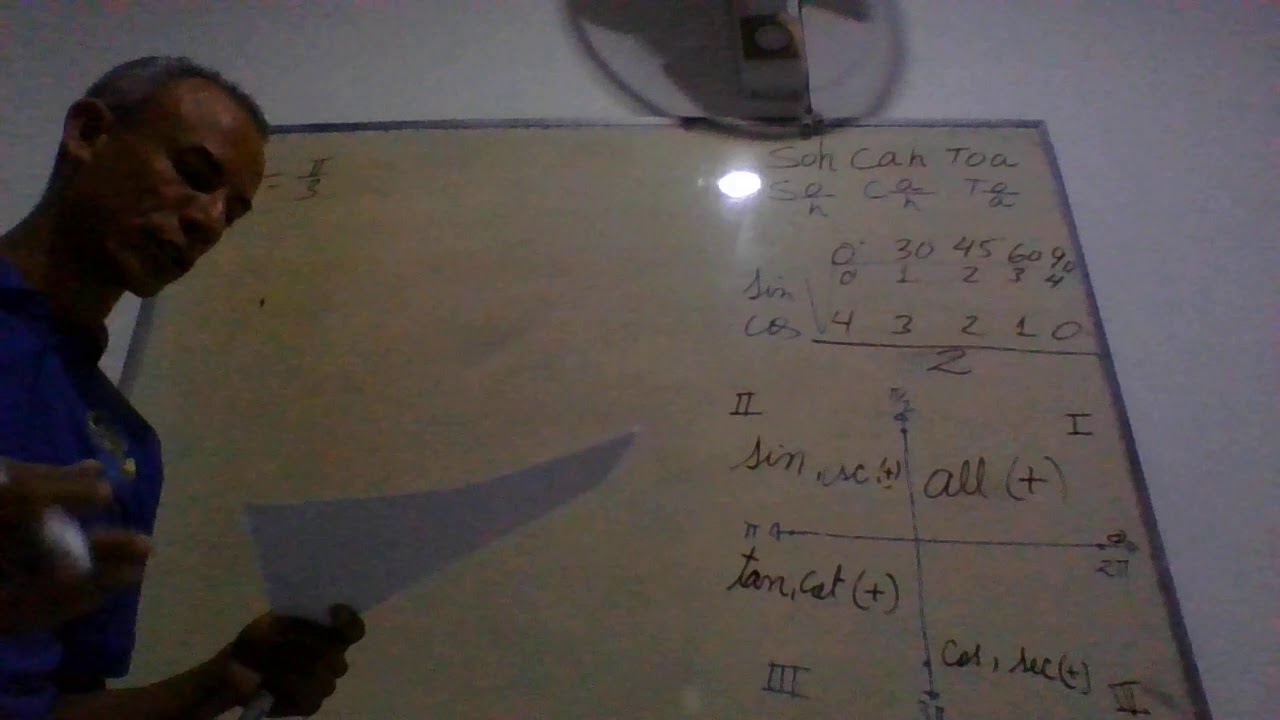 = π/3
Soh Cah Toa
S o/h C a/h T o/a
0° 30 45 60 90
sin √ 0 1 2 3 4
cos 4 3 2 1 0
2
π/2
II I
sin, csc (+) all (+)
π 0
2π
tan, cot (+)
cos, sec (+)
III IV
3π